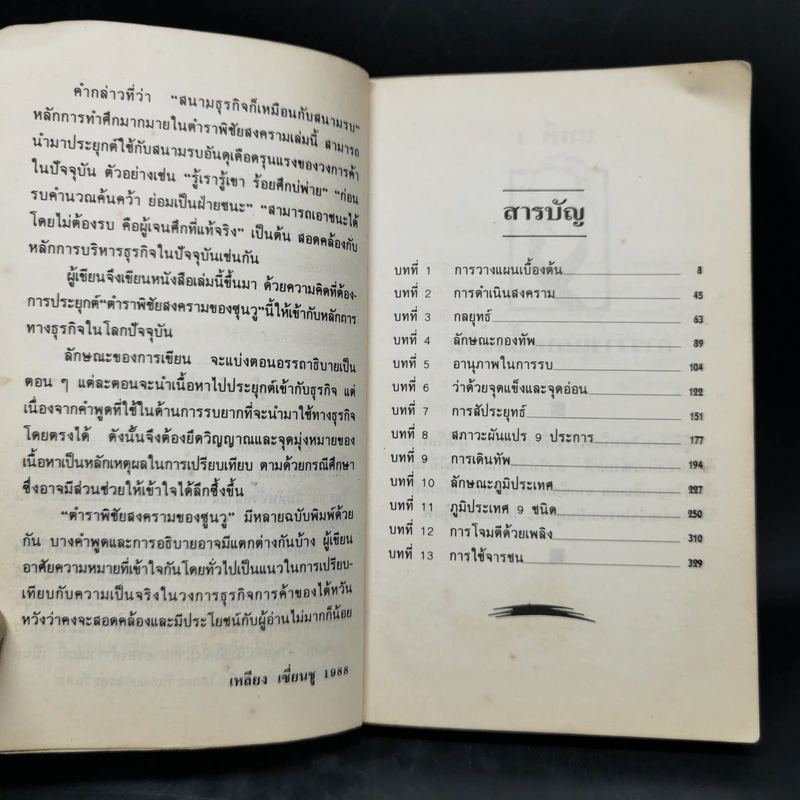 คำกล่าวที่ว่า “สนามธุรกิจก็เหมือนกับสนามรบ”
หลักการทำศึกมากมายในตำราพิชัยสงครามเล่มนี้ สามารถ
นำมาประยุกต์ใช้กับสนามรบอันดุเดือดรุนแรงของวงการค้า
ในปัจจุบัน ตัวอย่างเช่น “รู้เรารู้เขา ร้อยศึกบ่พ่าย” “ก่อน
รบคำนวณค้นคว้า ย่อมเป็นฝ่ายชนะ” “สามารถเอาชนะได้
โดยไม่ต้องรบ คือผู้เจนศึกที่แท้จริง” เป็นต้น สอดคล้องกับ
หลักการบริหารธุรกิจในปัจจุบันเช่นกัน
ผู้เขียนจึงเขียนหนังสือเล่มนี้ขึ้นมา ด้วยความคิดที่ต้อง-
การประยุกต์“ตำราพิชัยสงครามของซุนวู”นี้ให้เข้ากับหลักการ
ทางธุรกิจในโลกปัจจุบัน
ลักษณะของการเขียน จะแบ่งตอนอรรถาธิบายเป็น
ตอน ๆ แต่ละตอนจะนำเนื้อหาไปประยุกต์เข้ากับธุรกิจ แต่
เนื่องจากคำพูดที่ใช้ในด้านการรบยากที่จะนำมาใช้ทางธุรกิจ
โดยตรงได้ ดังนั้นจึงต้องยึดวิญญาณและจุดมุ่งหมายของ
เนื้อหาเป็นหลักเหตุผลในการเปรียบเทียบ ตามด้วยกรณีศึกษา
ซึ่งอาจมีส่วนช่วยให้เข้าใจได้ลึกซึ้งขึ้น
“ตำราพิชัยสงครามของซุนวู” มีหลายฉบับพิมพ์ด้วย
กัน บางคำพูดและการอธิบายอาจมีแตกต่างกันบ้าง ผู้เขียน
อาศัยความหมายที่เข้าใจกันโดยทั่วไปเป็นแนวในการเปรียบ-
เทียบกับความเป็นจริงในวงการธุรกิจการค้าของไต้หวัน
หวังว่าคงจะสอดคล้องและมีประโยชน์กับผู้อ่านไม่มากก็น้อย
เหลียง เซี่ยนซู 1988
สารบัญ
บทที่ 1 การวางแผนเบื้องต้น 8
บทที่ 2 การดำเนินสงคราม 45
บทที่ 3 กลยุทธ์ 63
บทที่ 4 ลักษณะกองทัพ 89
บทที่ 5 อานุภาพในการรบ 104
บทที่ 6 ว่าด้วยจุดแข็งและจุดอ่อน 122
บทที่ 7 การสัประยุทธ์ 151
บทที่ 8 สภาวะผันแปร 9 ประการ 177
บทที่ 9 การเดินทัพ 194
บทที่ 10 ลักษณะภูมิประเทศ 227
บทที่ 11 ภูมิประเทศ 9 ชนิด 250
บทที่ 12 การโจมตีด้วยเพลิง 310
บทที่ 13 การใช้จารชน 329